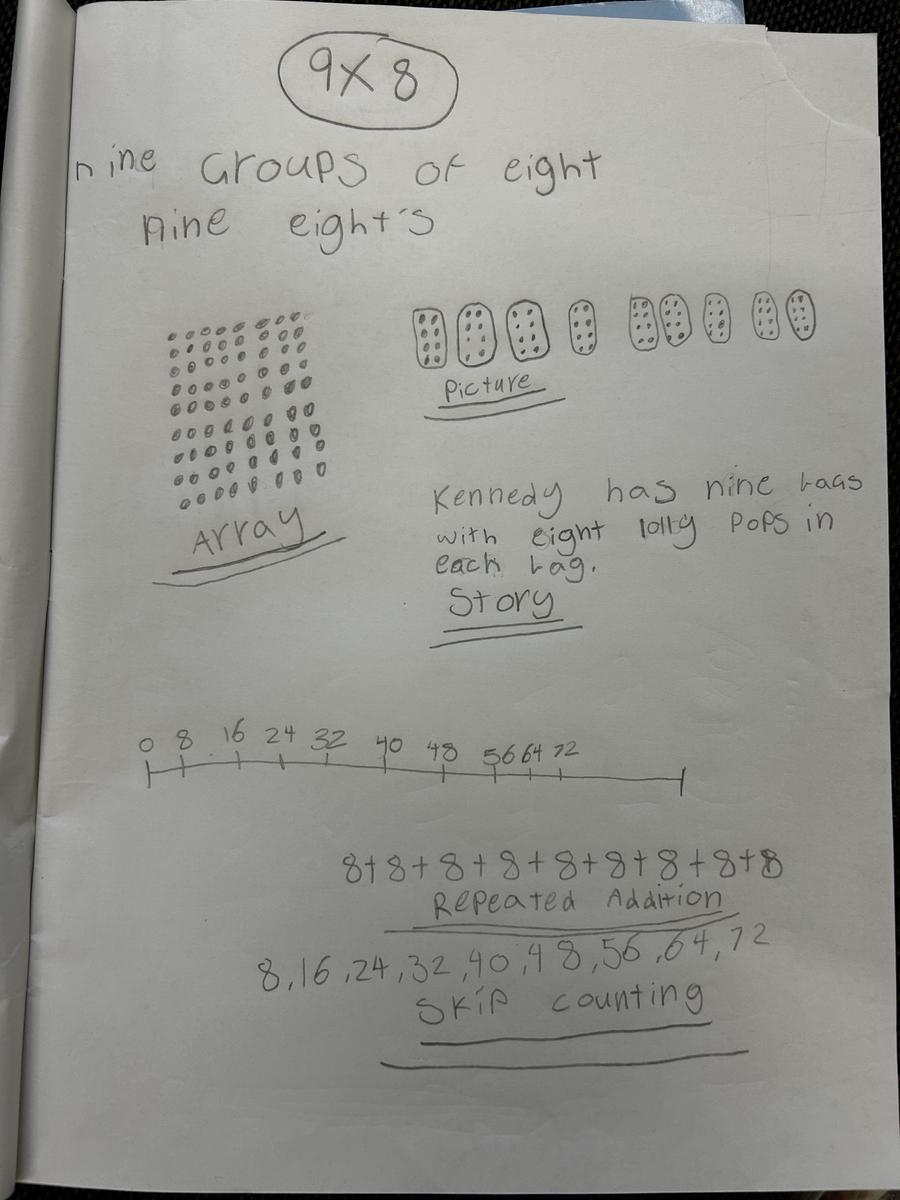 9x8
nine Groups of eight
nine eight's
Picture
Array
Kennedy has nine bags
with eight lolly pops in
each bag.
Story
0 8 16 24 32 40 48 56 64 72
8+8+8+8+8+8+8+8+8
Repeated Addition
8,16,24,32,40,48,56,64,72
Skip counting